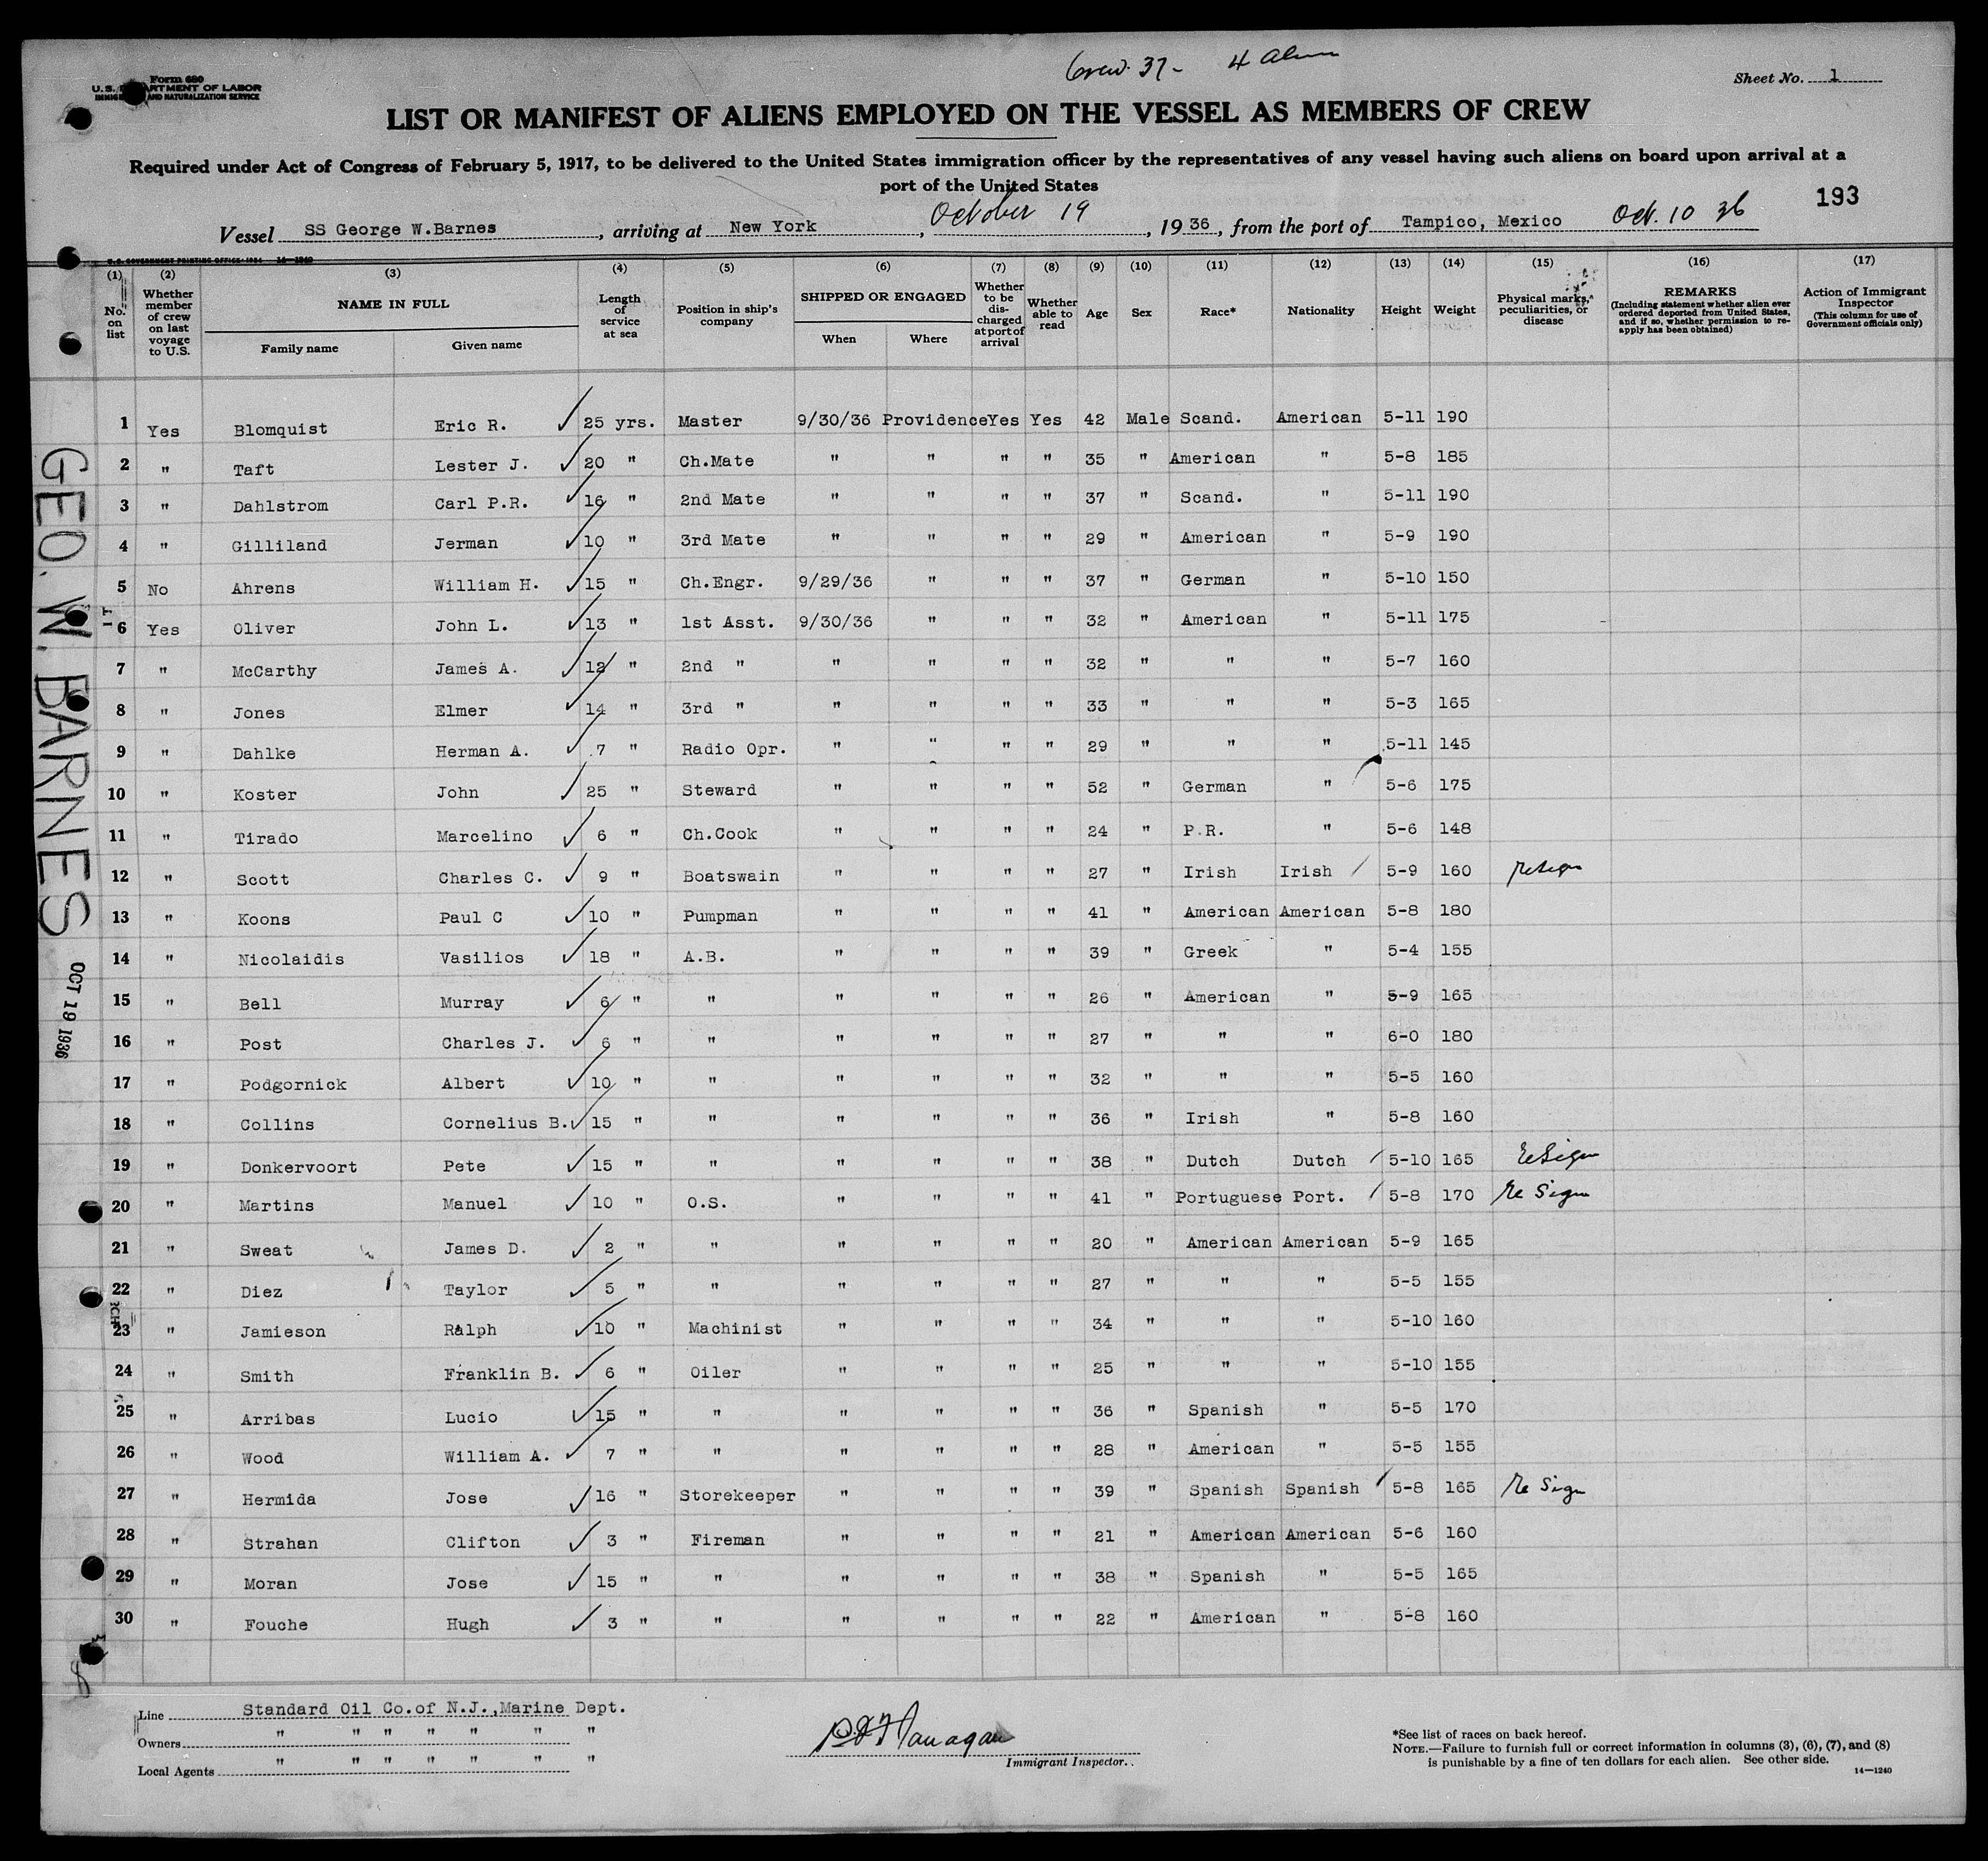 Crew 37- 4 Alien
Form 680
U.S. DEPARTMENT OF LABOR
IMMIGRATION AND NATURALIZATION SERVICE
Sheet No. 1
LIST OR MANIFEST OF ALIENS EMPLOYED ON THE VESSEL AS MEMBERS OF CREW
Required under Act of Congress of February 5, 1917, to be delivered to the United States immigration officer by the representatives of any vessel having such aliens on board upon arrival at a
port of the United States
193
Vessel SS George W.Barnes, arriving at New York, October 19, 1936, from the port of Tampico, Mexico Oct. 10 36
U.S. GOVERNMENT PRINTING OFFICE: 1934 14-1240
(1) (2) (3) (4) (5) (6) (7) (8) (9) (10) (11) (12) (13) (14) (15) (16) (17)
No. on list
Whether member of crew on last voyage to U.S.
NAME IN FULL
Family name Given name
Length of service at sea
Position in ship's company
SHIPPED OR ENGAGED
When Where
Whether to be discharged at port of arrival
Whether able to read
Age Sex Race* Nationality Height Weight
Physical marks, peculiarities, or disease
REMARKS
(Including statement whether alien ever ordered deported from United States, and if so, whether permission to reapply has been obtained)
Action of Immigrant Inspector
(This column for use of Government officials only)
1 Yes Blomquist Eric R. ✓ 25 yrs. Master 9/30/36 Providence Yes Yes 42 Male Scand. American 5-11 190
2 " Taft Lester J. ✓ 20 " Ch.Mate " " " " 35 " American " 5-8 185
3 " Dahlstrom Carl P.R. ✓ 16 " 2nd Mate " " " " 37 " Scand. " 5-11 190
4 " Gilliland Jerman ✓ 10 " 3rd Mate " " " " 29 " American " 5-9 190
5 No Ahrens William H. ✓ 15 " Ch.Engr. 9/29/36 " " " 37 " German " 5-10 150
6 Yes Oliver John L. ✓ 13 " 1st Asst. 9/30/36 " " " 32 " American " 5-11 175
7 " McCarthy James A. ✓ 12 " 2nd " " " " " 32 " " " 5-7 160
8 " Jones Elmer ✓ 14 " 3rd " " " " " 33 " " " 5-3 165
9 " Dahlke Herman A. ✓ 7 " Radio Opr. " " " " 29 " " " 5-11 145
10 " Koster John ✓ 25 " Steward " " " " 52 " German " 5-6 175
11 " Tirado Marcelino ✓ 6 " Ch.Cook " " " " 24 " P.R. " 5-6 148
12 " Scott Charles C. ✓ 9 " Boatswain " " " " 27 " Irish Irish 5-9 160 ReSign
13 " Koons Paul C ✓ 10 " Pumpman " " " " 41 " American American 5-8 180
14 " Nicolaidis Vasilios ✓ 18 " A.B. " " " " 39 " Greek " 5-4 155
15 " Bell Murray ✓ 6 " " " " " " 26 " American " 5-9 165
16 " Post Charles J. ✓ 6 " " " " " " 27 " " " 6-0 180
17 " Podgornick Albert ✓ 10 " " " " " " 32 " " " 5-5 160
18 " Collins Cornelius B. ✓ 15 " " " " " " 36 " Irish " 5-8 160
19 " Donkervoort Pete ✓ 15 " " " " " " 38 " Dutch Dutch 5-10 165 ReSign
20 " Martins Manuel ✓ 10 " O.S. " " " " 41 " Portuguese Port. 5-8 170 Re Sign
21 " Sweat James D. ✓ 2 " " " " " " 20 " American American 5-9 165
22 " Diez Taylor ✓ 5 " " " " " " 27 " " " 5-5 155
23 " Jamieson Ralph ✓ 10 " Machinist " " " " 34 " " " 5-10 160
24 " Smith Franklin B. ✓ 6 " Oiler " " " " 25 " " " 5-10 155
25 " Arribas Lucio ✓ 15 " " " " " " 36 " Spanish " 5-5 170
26 " Wood William A. ✓ 7 " " " " " " 28 " American " 5-5 155
27 " Hermida Jose ✓ 16 " Storekeeper " " " " 39 " Spanish Spanish 5-8 165 Re Sign
28 " Strahan Clifton ✓ 3 " Fireman " " " " 21 " American American 5-6 160
29 " Moran Jose ✓ 15 " " " " " " 38 " Spanish " 5-5 165
30 " Fouche Hugh ✓ 3 " " " " " " 22 " American " 5-8 160
GEO. W. BARNES
OCT 19 1936
Line Standard Oil Co.of N.J.,Marine Dept.
Owners " " " " " " "
Local Agents " " " " " " "
Flanagan
Immigrant Inspector.
*See list of races on back hereof.
NOTE.—Failure to furnish full or correct information in columns (3), (6), (7), and (8)
is punishable by a fine of ten dollars for each alien. See other side.
14—1240